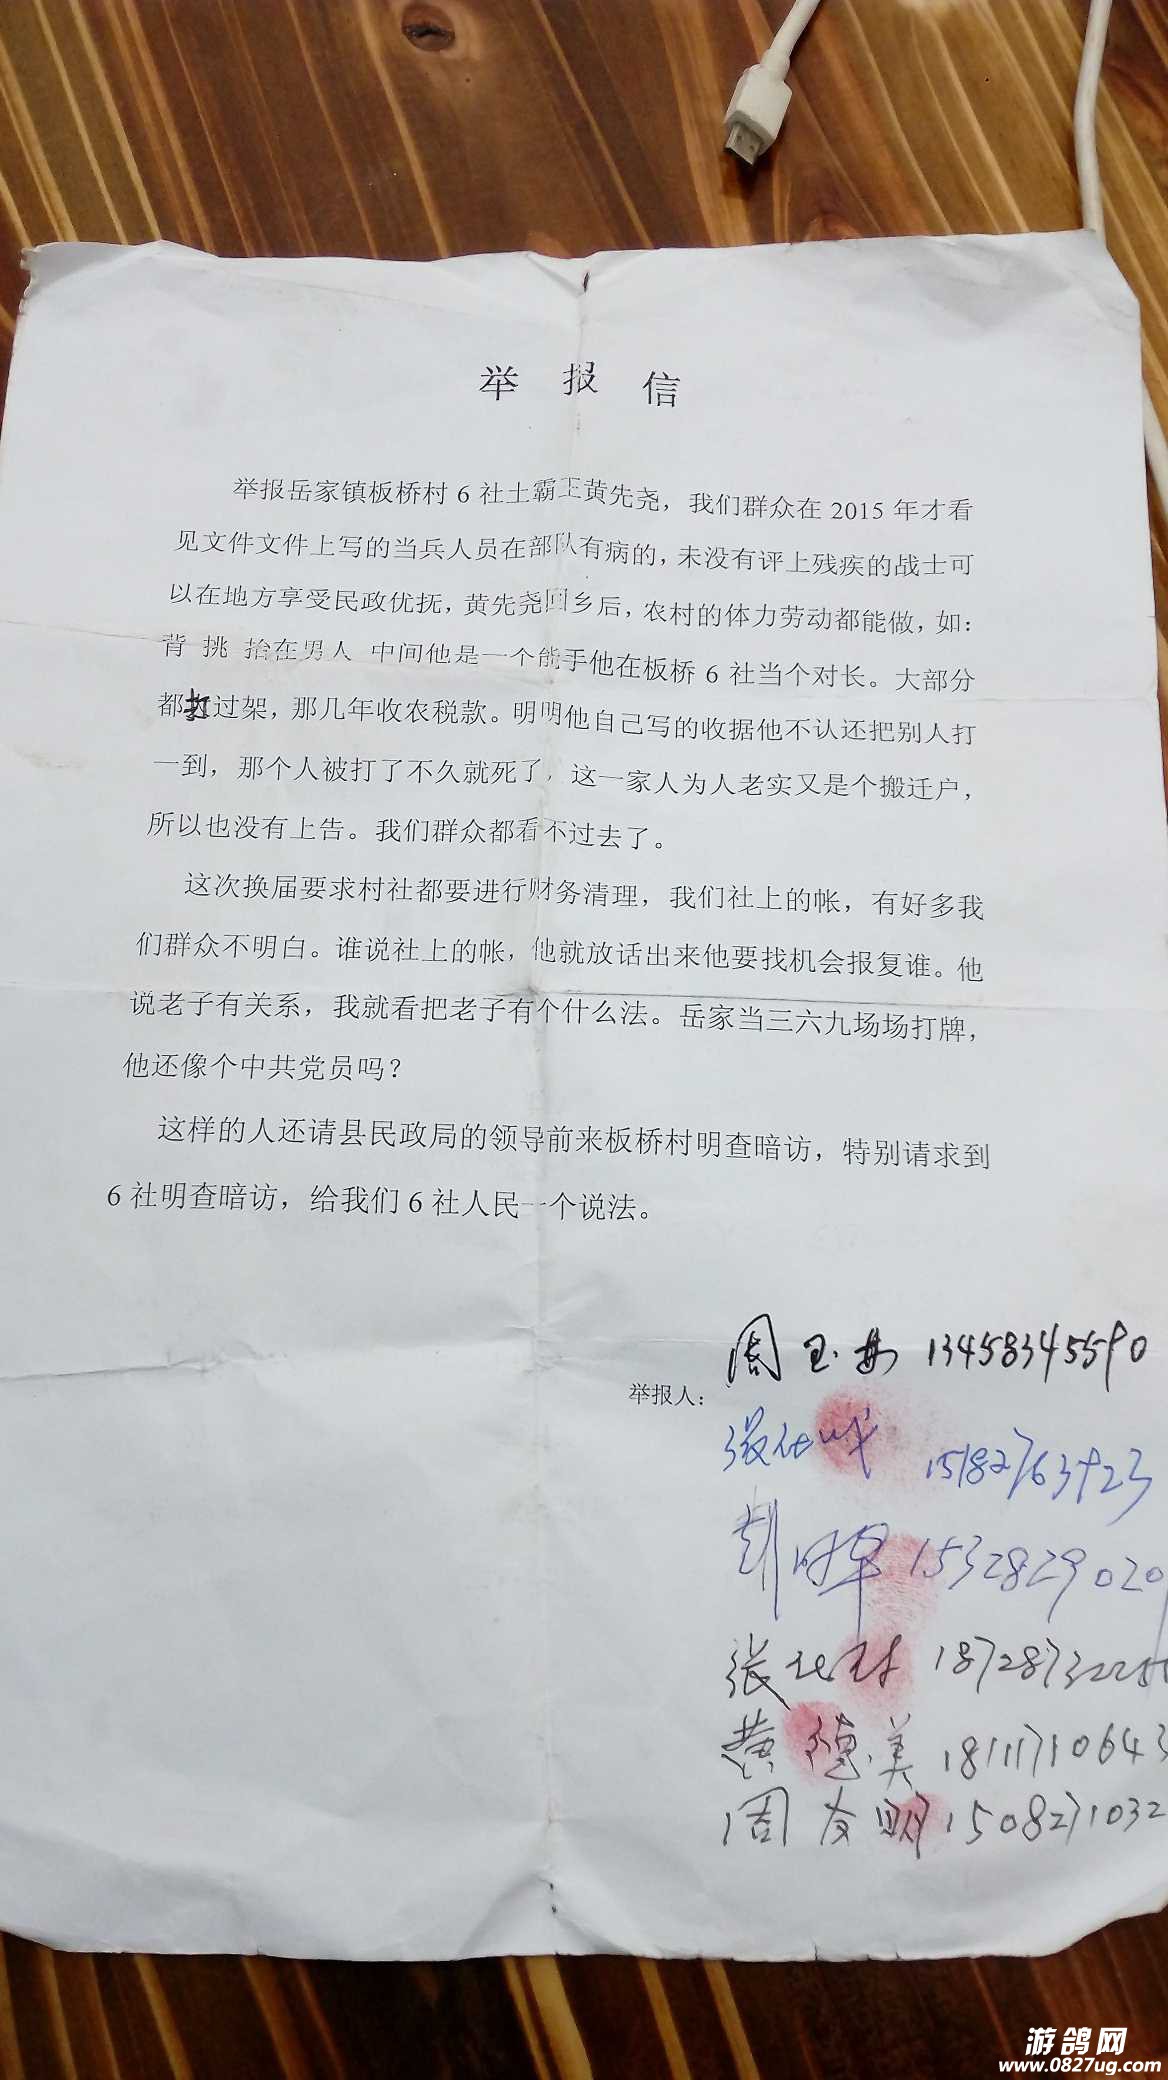 举 报 信
举报岳家镇板桥村 6 社土霸王黄先尧，我们群众在 2015 年才看
见文件文件上写的当兵人员在部队有病的，未没有评上残疾的战士可
以在地方享受民政优抚，黄先尧回乡后，农村的体力劳动都能做，如：
背 挑 抬在男人 中间他是一个能手他在板桥 6 社当个对长。大部分
都打过架，那几年收农税款。明明他自己写的收据他不认还把别人打
一到，那个人被打了不久就死了，这一家人为人老实又是个搬迁户，
所以也没有上告。我们群众都看不过去了。
这次换届要求村社都要进行财务清理，我们社上的帐，有好多我
们群众不明白。谁说社上的帐，他就放话出来他要找机会报复谁。他
说老子有关系，我就看把老子有个什么法。岳家当三六九场场打牌，
他还像个中共党员吗？
这样的人还请县民政局的领导前来板桥村明查暗访，特别请求到
6 社明查暗访，给我们 6 社人民一个说法。
周玉 13458345590
举报人：
张仕 15182763923
153282902
张 18728732
黄德美 1811710643
周友明 1508271032
游鸽网
www.0827ug.com